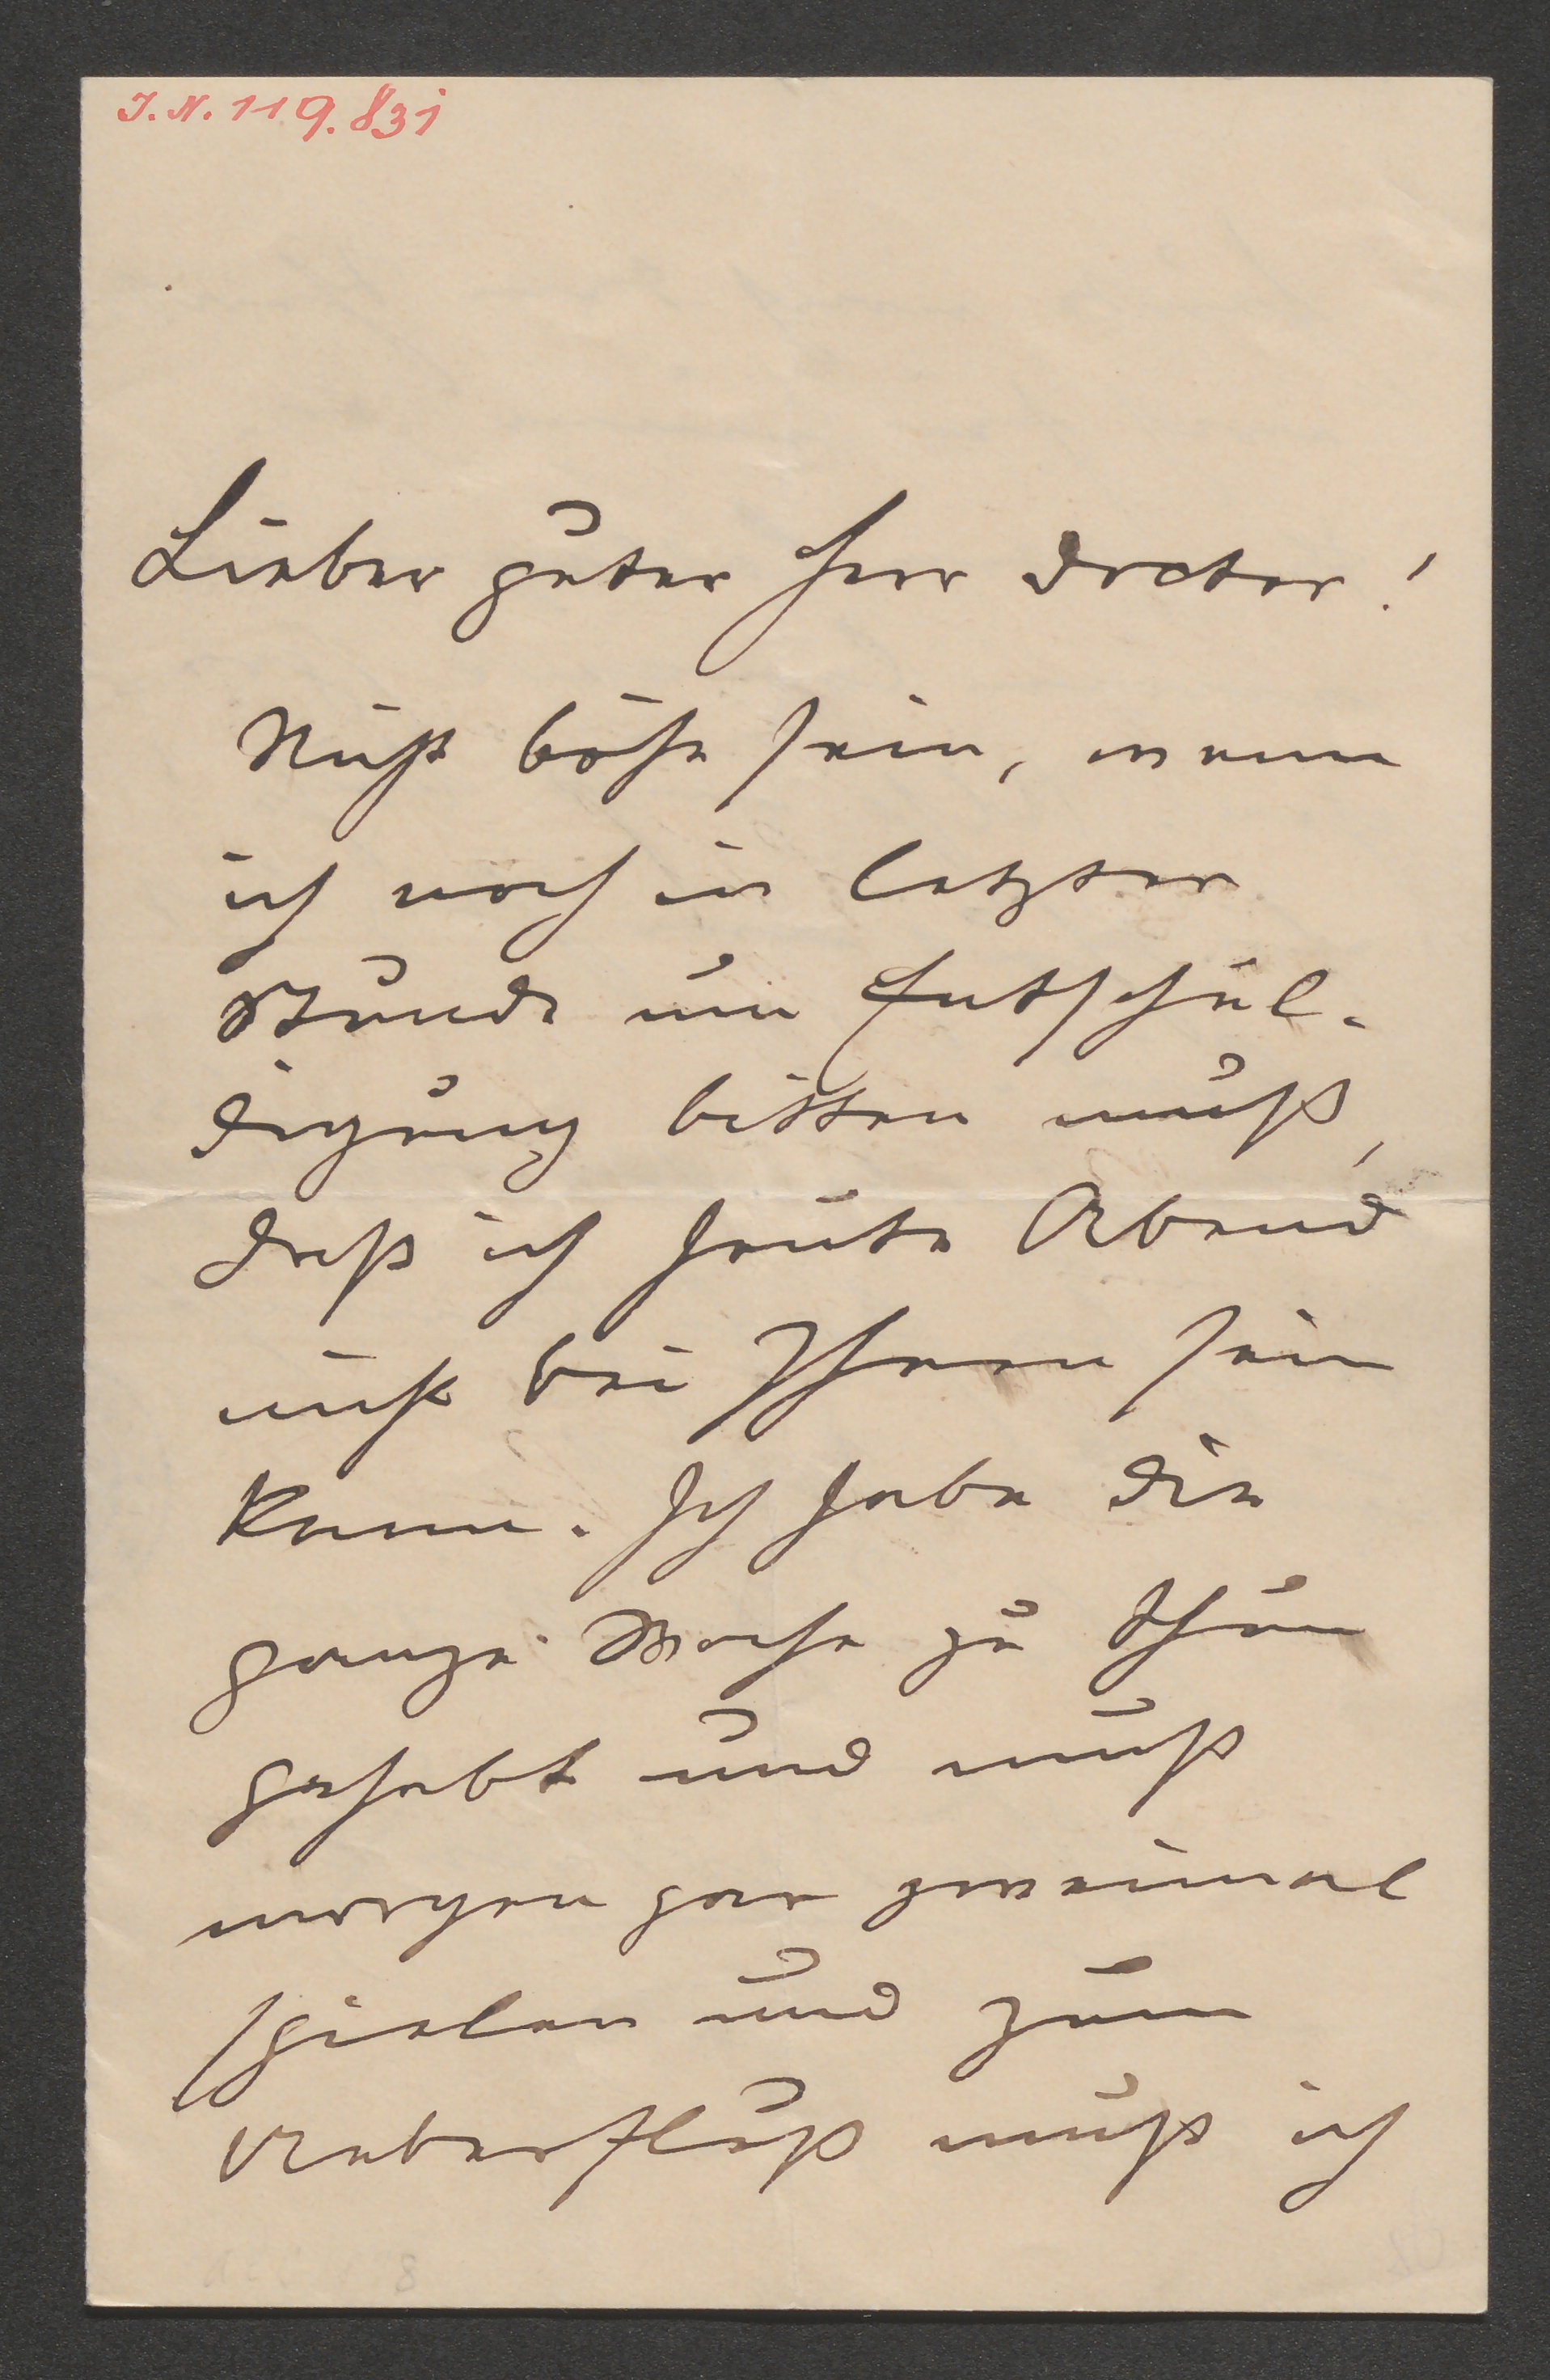 I.N. 119.831
Lieber guter Herr Doctor!
Nicht böse sein, wenn
ich noch in letzter
Stunde um Entschul-
digung bitten muß,
daß ich heute Abend
nicht bei Ihnen sein
kann. Ich habe die
ganze Woche zu thun
gehabt und muß
morgen gar zweimal
spielen und zum
Ueberfluß muß ich